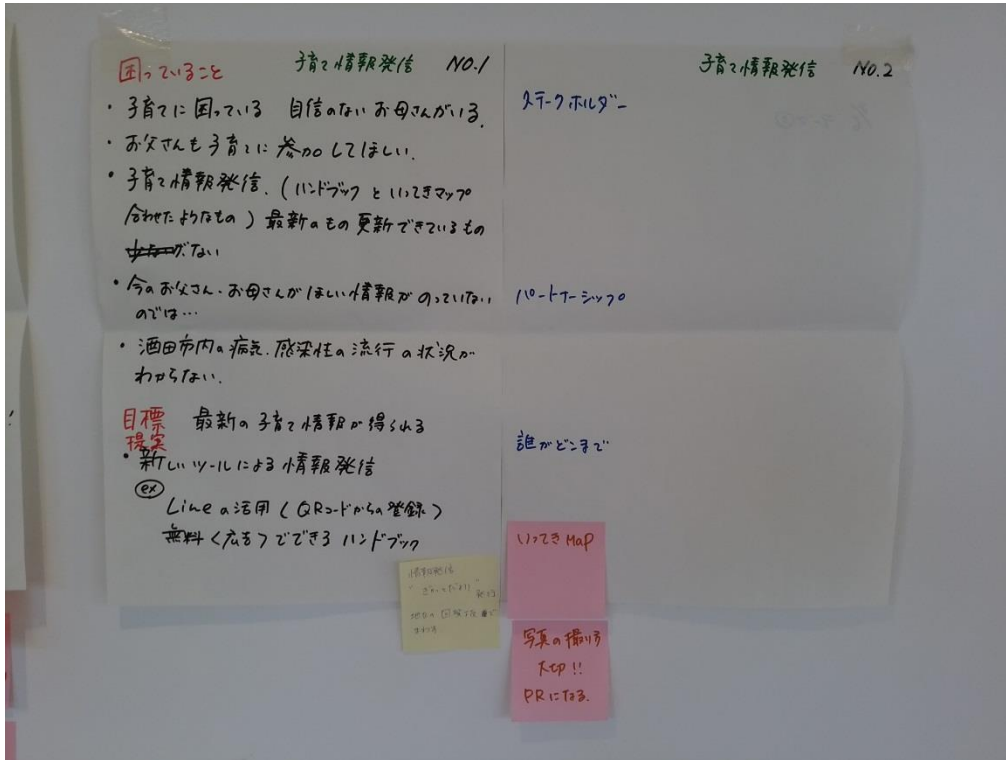 子育て情報発信 NO.1
困っていること
・子育てに困っている 自信のないお母さんがいる.
・お父さんも子育てに参加してほしい.
・子育て情報発信.(ハンドブックといってきマップ
合わせたようなもの)最新のもの更新できているもの
がない
・今のお父さん・お母さんがほしい情報がのっていない
のでは…
・酒田市内の病気.感染性の流行の状況が
わからない.
目標 最新の子育て情報が得られる
提案
・新しいツールによる情報発信
ex
Lineの活用(QRコードからの登録)
無料<広告>でできるハンドブック
情報発信
発行
子育て情報発信 NO.2
ステークホルダー
パートナーシップ
誰がどこまで
いってきMAP
写真の撮り方
大切!!
PRになる.